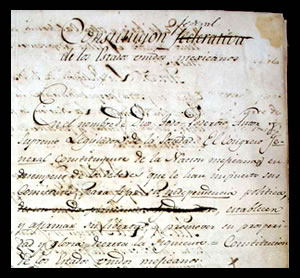 federal
Constitucion federativa
de los Estados unidos mexicanos
En el nombre de Dios
Supremo Legislador de la Sociedad. El Congreso Ge-
neral Constituyente de la Nacion mexicana, en
desempeño de los deberes que le han impuesto sus
Comitentes, para fijar su Independencia politica,
establecer
y afirmar su libertad, y promover su prosperi-
dad y gloria, decreta la siguiente = Constitucion
de los Estados unidos mexicanos =